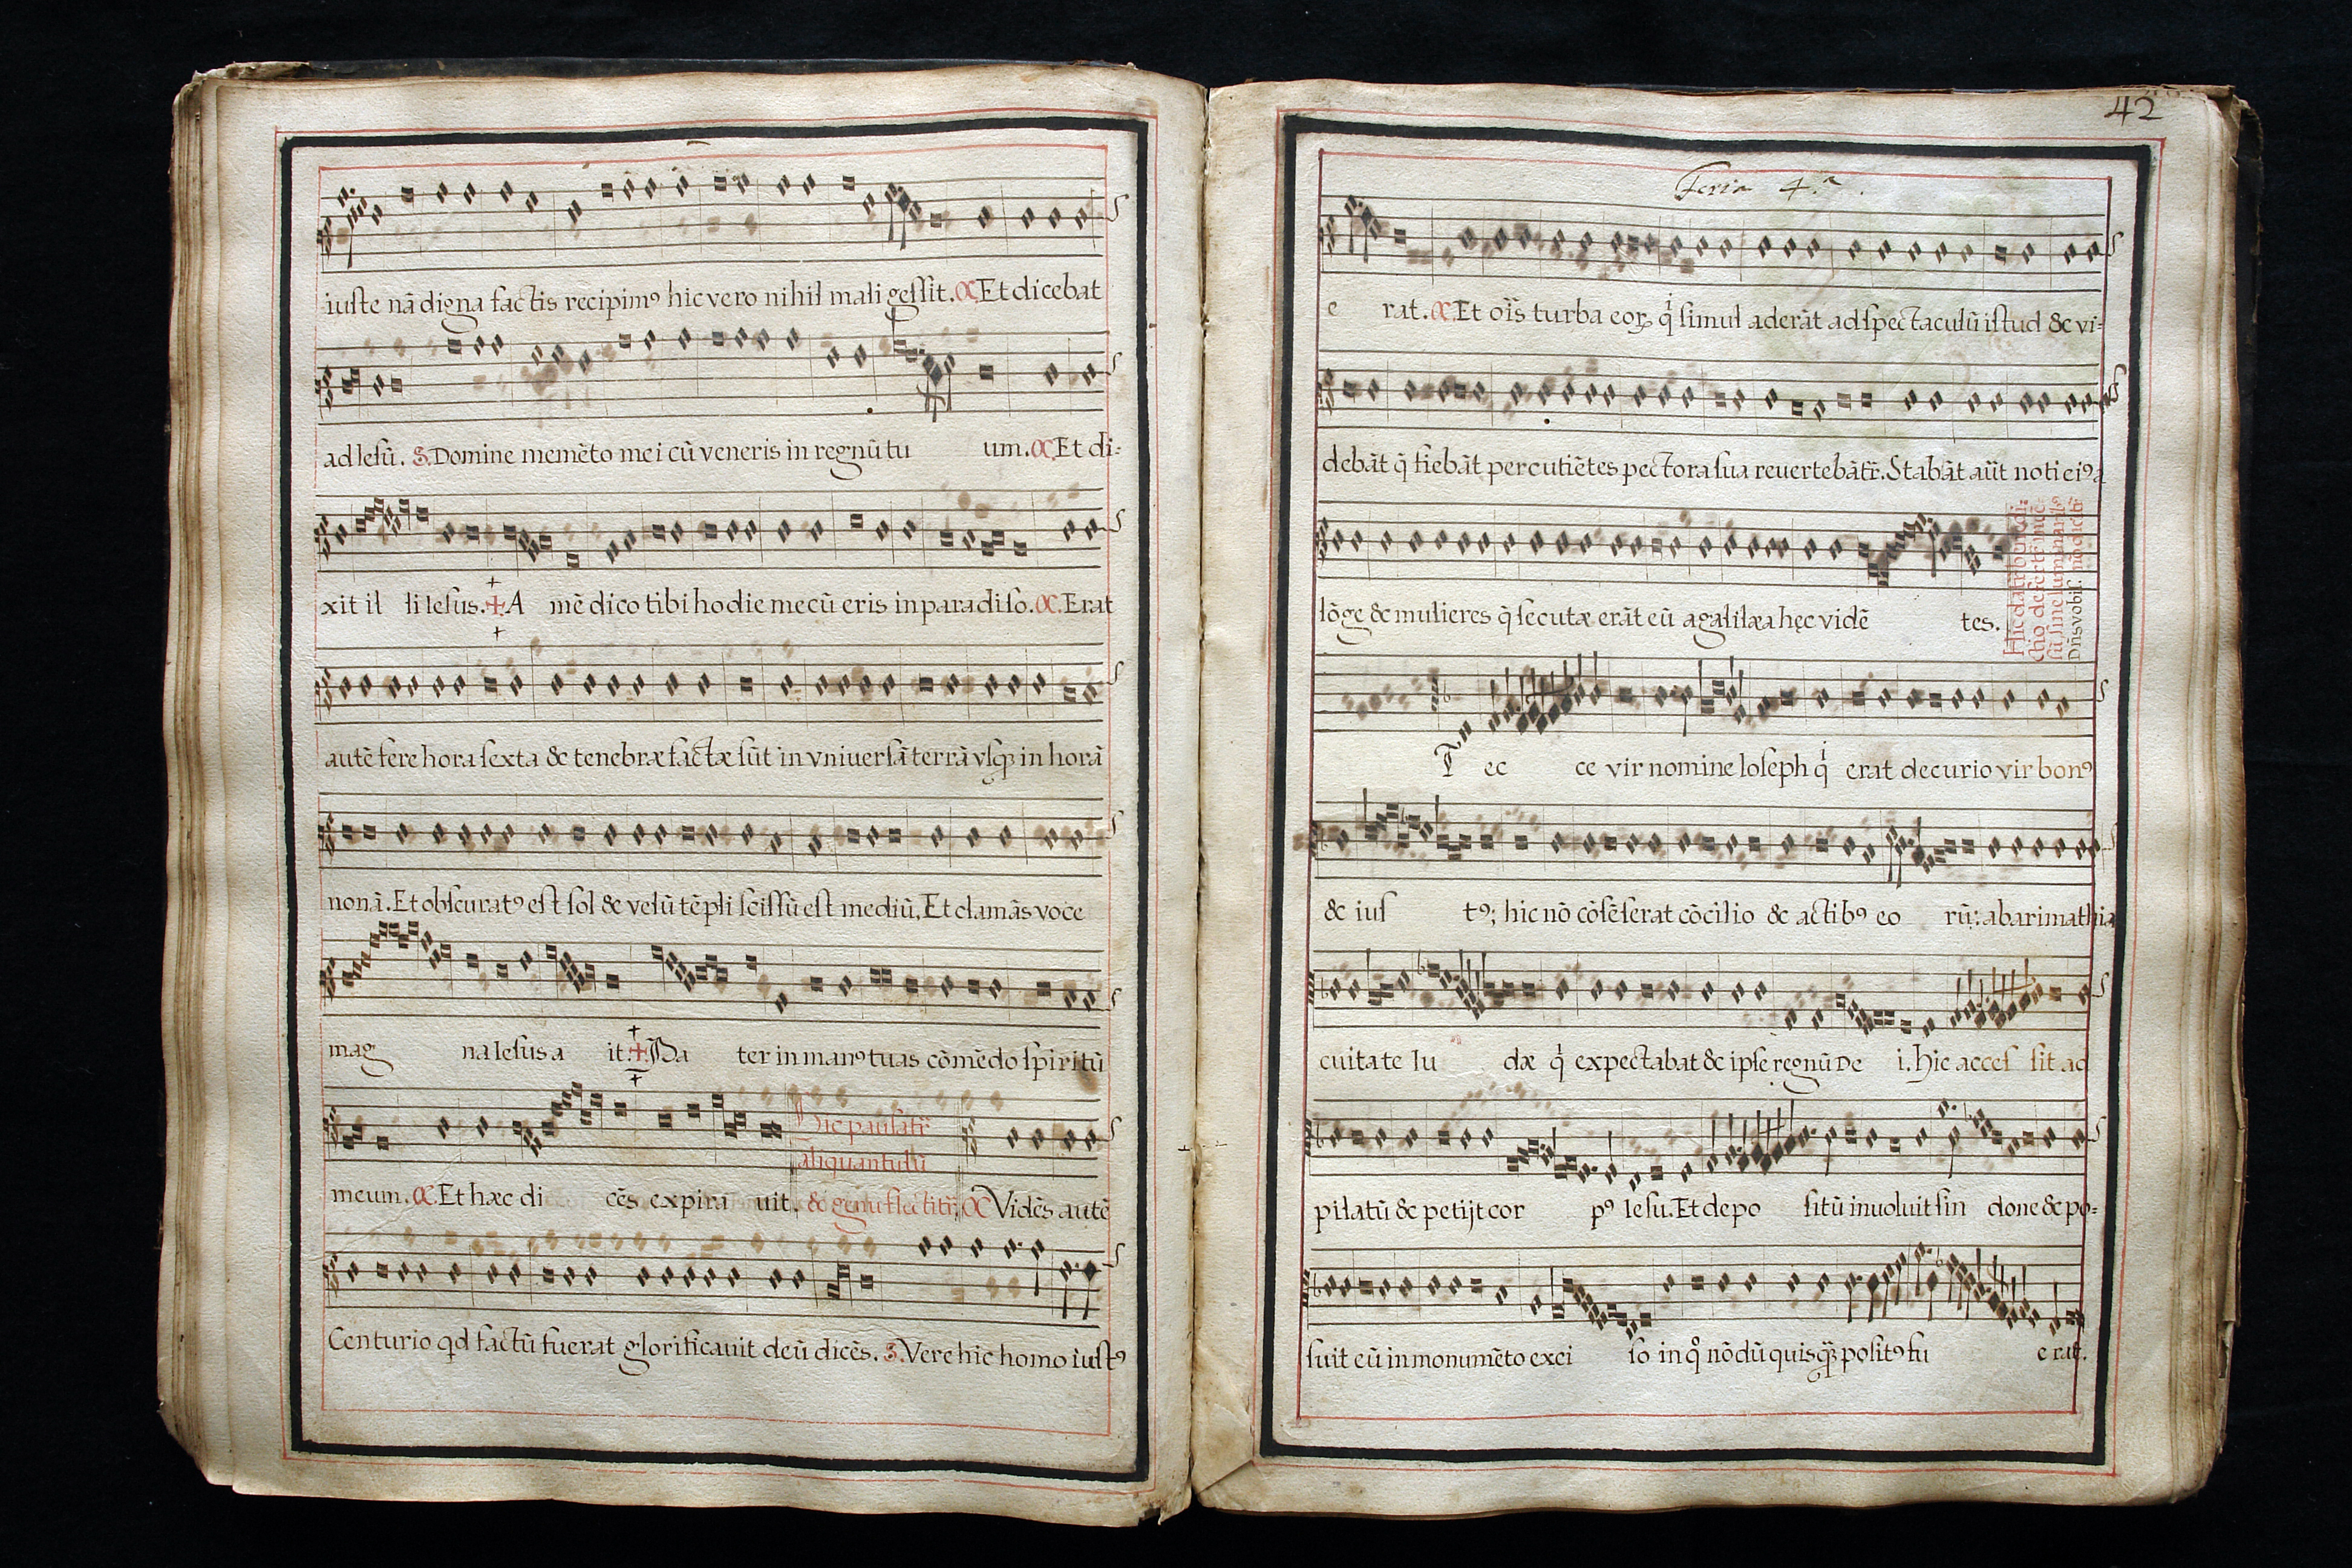 iuste nā digna factis recipimꝰ hic vero nihil mali gessit. C. Et dicebat
ad Iesū. S. Domine memēto mei cū veneris in regnū tu um. C. Et di-
xit il li Iesus. + A mē dico tibi hodie mecū eris in paradiso. C. Erat
autē fere hora sexta & tenebræ factæ sūt in vniuersā terrā vsqꝫ in horā
nonā. Et obscuratꝰ est sol & velū tēpli scissū est mediū, Et clamās voce
mag na Iesus a it: + Pa ter in manꝰ tuas cōmēdo spiritū
Hic pausat̄r
aliquantulū
meum. C. Et hæc di cēs expira uit. & genuflectit̄r, C Vidēs autē
Centurio qd factū fuerat glorificauit deū dicēs. S. Vere hic homo iustꝰ
42
Feria 4.ª
e rat. C. Et oīs turba eoꝝ q̇ simul aderāt ad spectaculū istud & vi-
debāt q̄ fiebāt percutiētes pectora sua reuertebāt̄r. Stabāt aūt noti eiꝰ a
lōge & mulieres q̄ secutæ erāt eū a galilæa hęc vidē tes.
Dn̄s vobis.
Et ec ce vir nomine Ioseph q̇ erat decurio vir bonꝰ
& ius tꝰ; hic nō cōsēserat cōcilio & actibꝰ eo rū: ab arimathia
cuitate Iu dæ q̇ expectabat & ipse regnū De i. Hic acces sit ad
pilatū & petijt cor pꝰ Iesu. Et depo sitū inuoluit sin done & po-
suit eū in monumēto exci so in q̊ nōdū quisqꝫ positꝰ fu e rat.